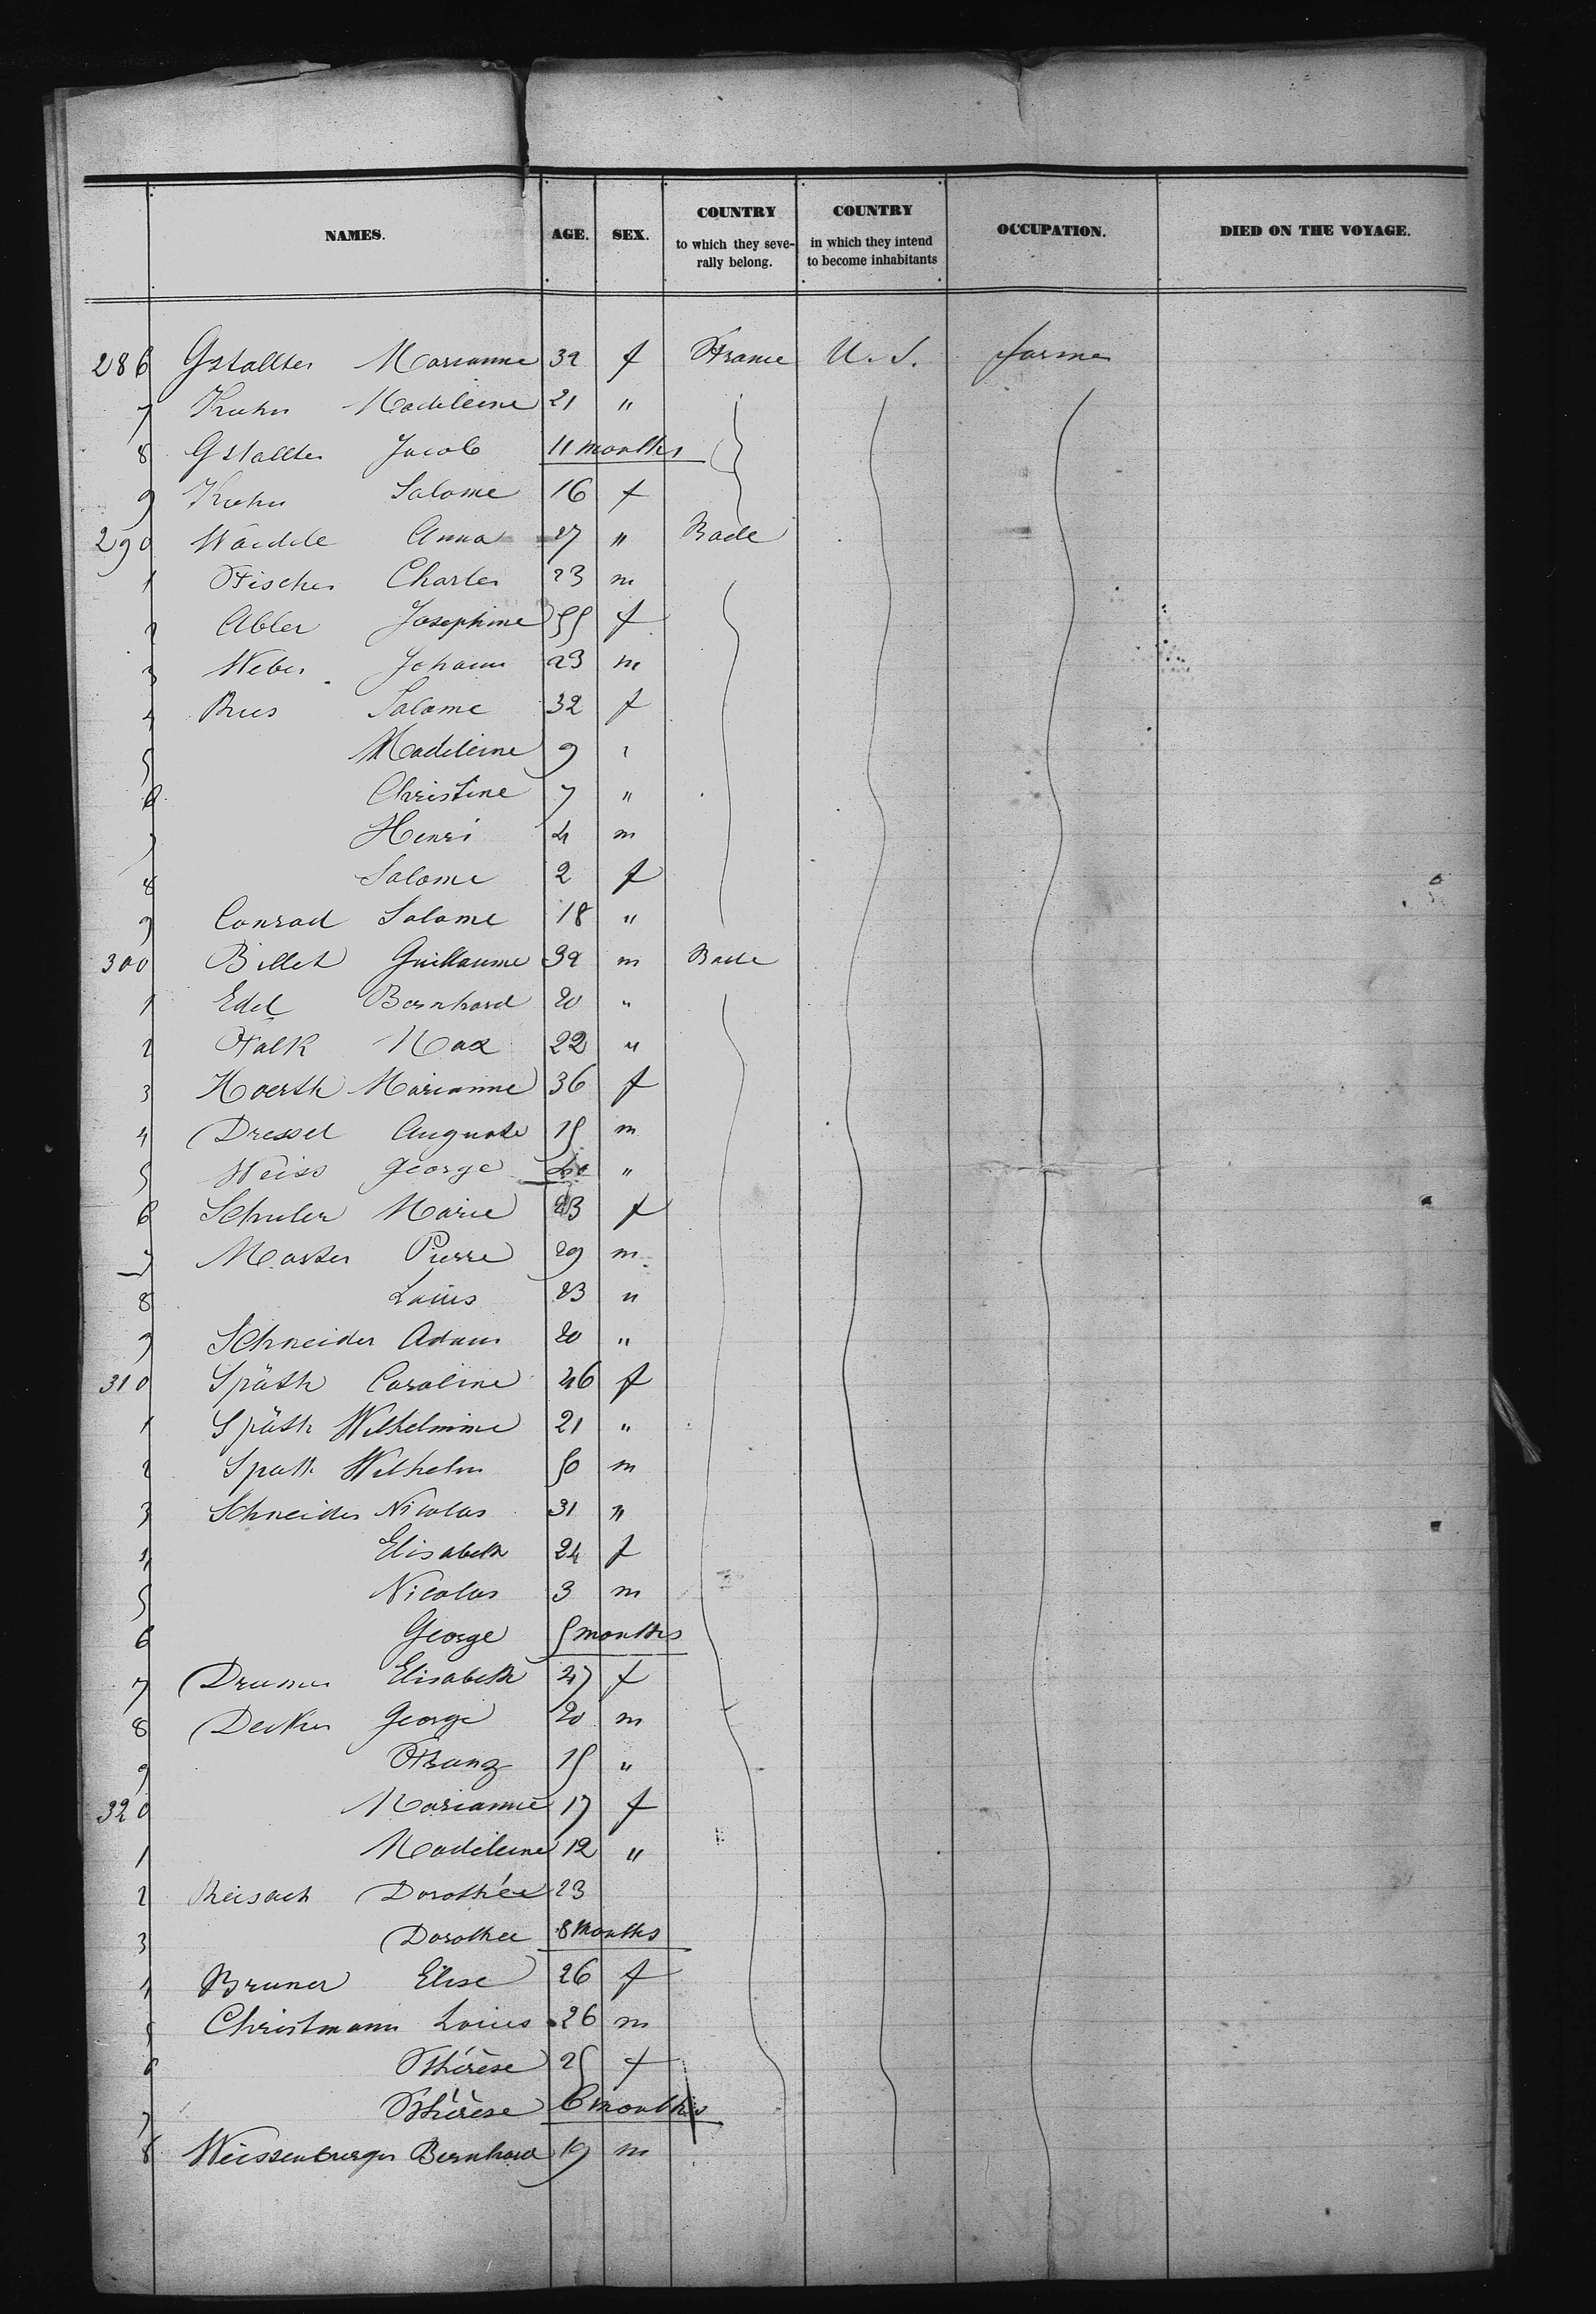 NAMES. AGE. SEX. COUNTRY to which they seve-rally belong. COUNTRY in which they intend to become inhabitants OCCUPATION. DIED ON THE VOYAGE.
286 Gstallter Marianne 32 f France U. S. farmer
7 Kuhn Madeleine 21 "
8 Gstallter Jacob 11 months
9 Kuhn Salome 16 f
290 Anna 27 " Bade
1 Fischer Charles 23 m
2 Abler Josephine 55 f
3 Weber Johann 23 m
4 Salome 32 f
5 Madeleine 9 "
6 Christine 7 "
7 Henri 4 m
8 Salome 2 f
9 Conrad Salome 18 "
300 Billet Guillaume 32 m Bade
1 Edel Bernhard 20 "
2 Falk Max 22 "
3 Hoerth Marianne 36 f
4 Dressel Auguste 15 m
5 Weiss George "
6 Schuler Marie 23 f
7 Master Pierre 29 m
8 Louis 23 "
9 Schneider Adam 20 "
310 Späth Caroline 46 f
1 Späth Wilhelmine 21 "
2 Spath Wilhelm 50 m
3 Schneider Nicolas 31 "
4 Elisabeth 24 f
5 Nicolas 3 m
6 George 5 months
7 Elisabeth 27 f
8 Decker George 20 m
9 Franz 15 "
320 Marianne 17 f
1 Madeleine 12 "
2 Reisach Dorothée 23
3 Dorothee 8 Months
4 Bruner Elise 26 f
5 Christmann Louis 26 m
6 Thérèse 25 f
7 Thérèse 6 months
8 Weissenburger Bernhard 19 m